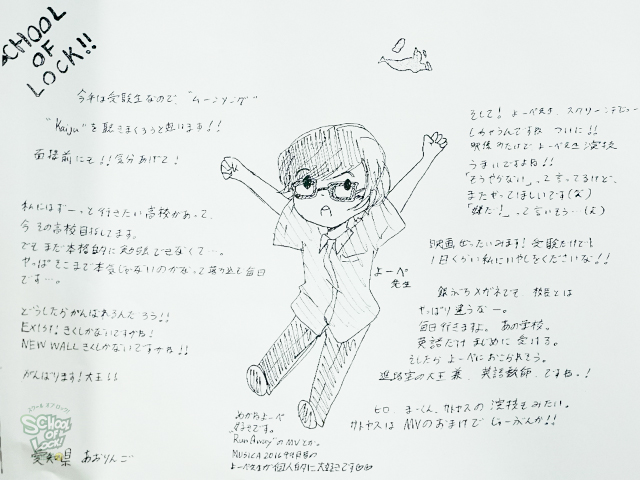 SCHOOL
OF
LOCK!!
今年は受験生なので、"ムーンソング"
"Kaiju"を聴きまくろうと思います!!
面接前にも!!気分あげて!
私にはずーっと行きたい高校があって、
今その高校目指してます。
でもまだ本格的に勉強できなくて…。
やっぱそこまで本気じゃないのかなって繰り返し毎日
です…。
どうしたらがんばれるんだろう!!
EXIST!きくしかないですかね!
NEW WALLきくしかないですかね!!
がんばります!大王!!
スクール オブ ロック!
SCHOOL
OF
LOCK!
愛知県 あおりんご
よーぺ
先生
めがねよーぺ
好きです。
"Run Away"のMVとか。
MUSICA2016年4月号の
よーぺ先生が個人的に大好きです
そして!よーぺさん、スクリーンデビュー
しちゃうんですね ついに!!
映像のだけでよーぺさん演技
うまいですよね!!
「そうやらない」って言ってるけど、
またやってほしいです(笑)
「嫌だ!」って言いそう…(笑)
映画ぜったいみます!受験だけでも
1日くらい私にいやしをくださいな!!
銀ぶちメガネでも 校長とは
やっぱり違うなー。
毎日行きますよ。あの学校。
英語だけまじめに受ける。
そしたらよーぺにおこられそう。
進路室の大王兼、英語教師、ですね!
ヒロ、まーくん、サトヤスの演技もみたい。
サトヤスはMVのおまけでじゅーぶんか!!